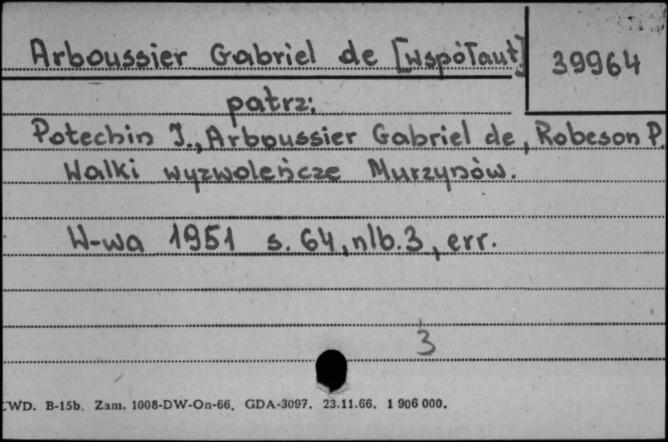 Arboussier Gabriel de [współaut]
39964
patrz:
Potechin I., Arboussier Gabriel de, Robeson P.
Walki wyzwoleńcze Murzynów.
W-wa 1951 s. 64, nlb. 3, err.
3
CWD. B-15b. Zam. 1008-DW-On-66. GDA-3097. 23.11.66. 1 906 000.